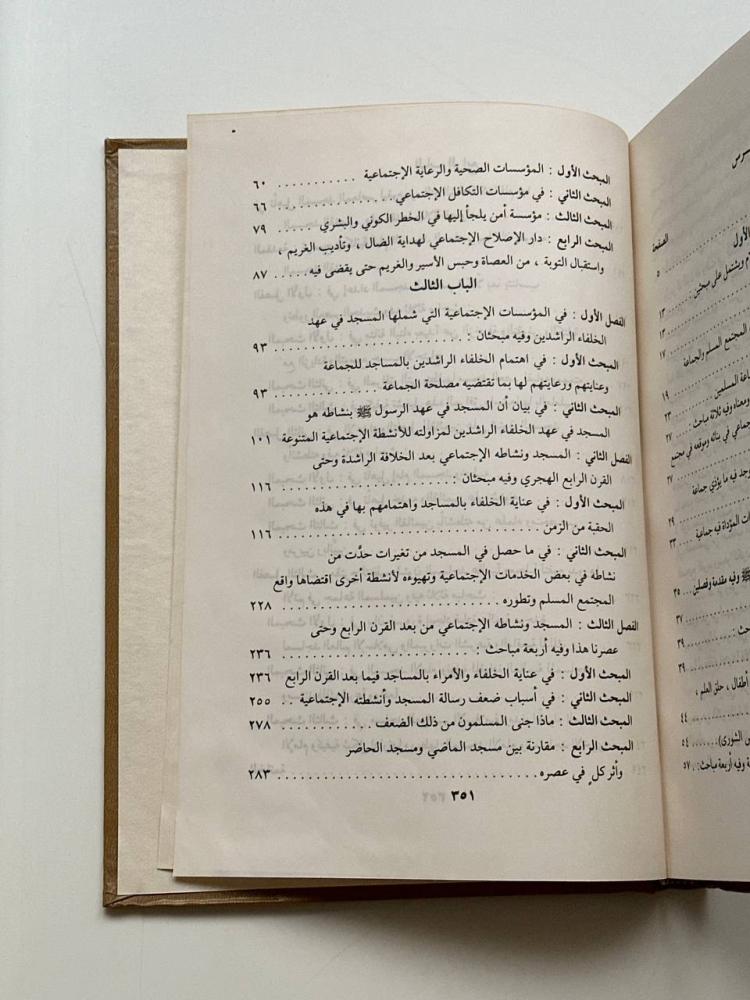 المبحث الأول : المؤسسات الصحية والرعاية الإجتماعية . . . . . . . . . . . ٦٠
المبحث الثاني : في مؤسسات التكافل الإجتماعي . . . . . . . . . . . . . . ٦٦
المبحث الثالث : مؤسسة أمن يلجأ إليها في الخطر الكوني والبشري . . . . . ٧٩
المبحث الرابع : دار الإصلاح الإجتماعي لهداية الضال ، وتأديب الغريم ،
واستقبال التوبة ، من العصاة وحبس الأسير والغريم حتى يقضى فيه . . . . ٨٧
الباب الثالث
الفصل الأول : في المؤسسات الإجتماعية التي شملها المسجد في عهد
الخلفاء الراشدين وفيه مبحثان : . . . . . . . . . . . . . . . . . . ٩٣
المبحث الأول : في اهتمام الخلفاء الراشدين بالمساجد للجماعة
وعنايتهم ورعايتهم لها بما تقتضيه مصلحة الجماعة . . . . . . . . . . ٩٣
المبحث الثاني : في بيان أن المسجد في عهد الرسول ﷺ بنشاطه هو
المسجد في عهد الخلفاء الراشدين لمزاولته للأنشطة الإجتماعية المتنوعة ١٠١
الفصل الثاني : المسجد ونشاطه الإجتماعي بعد الخلافة الراشدة وحتى
القرن الرابع الهجري وفيه مبحثان : . . . . . . . . . . . . . . . . ١١٦
المبحث الأول : في عناية الخلفاء بالمساجد واهتمامهم بها في هذه
الحقبة من الزمن . . . . . . . . . . . . . . . . . . . . . . . . . ١١٦
المبحث الثاني : في ما حصل في المسجد من تغيرات حدَّت من
نشاطه في بعض الخدمات الإجتماعية وتهيوءه لأنشطة أخرى اقتضاها واقع
المجتمع المسلم وتطوره . . . . . . . . . . . . . . . . . . . . . . ٢٢٨
الفصل الثالث : المسجد ونشاطه الإجتماعي من بعد القرن الرابع وحتى
عصرنا هذا وفيه أربعة مباحث : . . . . . . . . . . . . . . . . . . ٢٣٦
المبحث الأول : في عناية الخلفاء والأمراء بالمساجد فيما بعد القرن الرابع ٢٣٦
المبحث الثاني : في أسباب ضعف رسالة المسجد وأنشطته الإجتماعية . . ٢٥٥
المبحث الثالث : ماذا جنى المسلمون من ذلك الضعف . . . . . . . . . ٢٧٨
المبحث الرابع : مقارنة بين مسجد الماضي ومسجد الحاضر
وأثر كل في عصره . . . . . . . . . . . . . . . . . . . . . . . . . ٢٨٣
٣٥١
الصفحة
الأول
٥
م ويشتمل على مبحثين
١٣
١٣
١٧
المجتمع المسلم والجماعة
١٩
المسلمين
٢٣
ومعناه وفيه ثلاثة مباحث :
٢٧
في بنائه وموقعه في مجتمع
٢٧
فيه ما يؤذي جماعة
٢٩
المؤداة فيه جماعية
٣٣
ﷺ وفيه مقدمة وفصلين
٣٥
٣٧
٣٩
٣٩
أطفال ، حلق العلم ،
٤٤
الشورى) . . . . . . ٥٤
وفيه أربعة مباحث: . . ٥٧